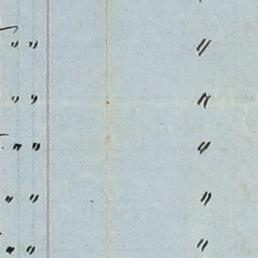 " " "
" " "
" " "
" " "
" " "